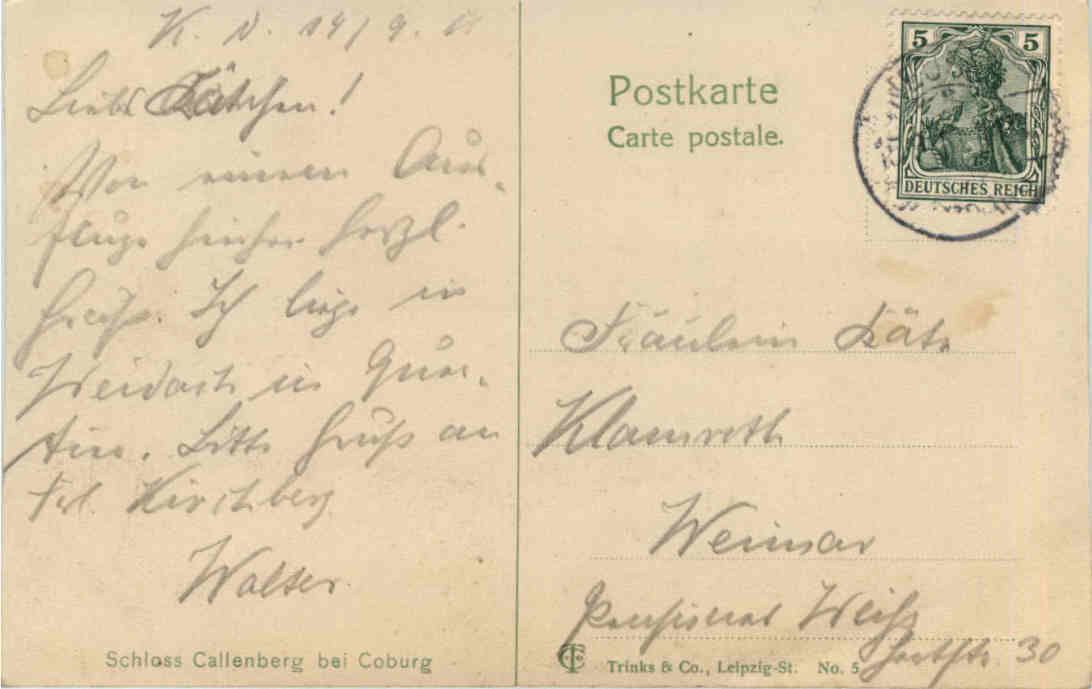 K. D. 14/9. 11
Liebs Kätchen!
Von einem Aus-
fluge hierher herzl.
Grüße. Ich liege in
Weidach in Quar-
tier. Bitte Gruß an
Frl. Kirchberg
Walter.
Schloss Callenberg bei Coburg
Postkarte
Carte postale.
5 5
DEUTSCHES REICH
Fräulein Käte
Klamroth
Weimar
Pensionat Weiß
30
Trinks & Co., Leipzig-St. No. 5